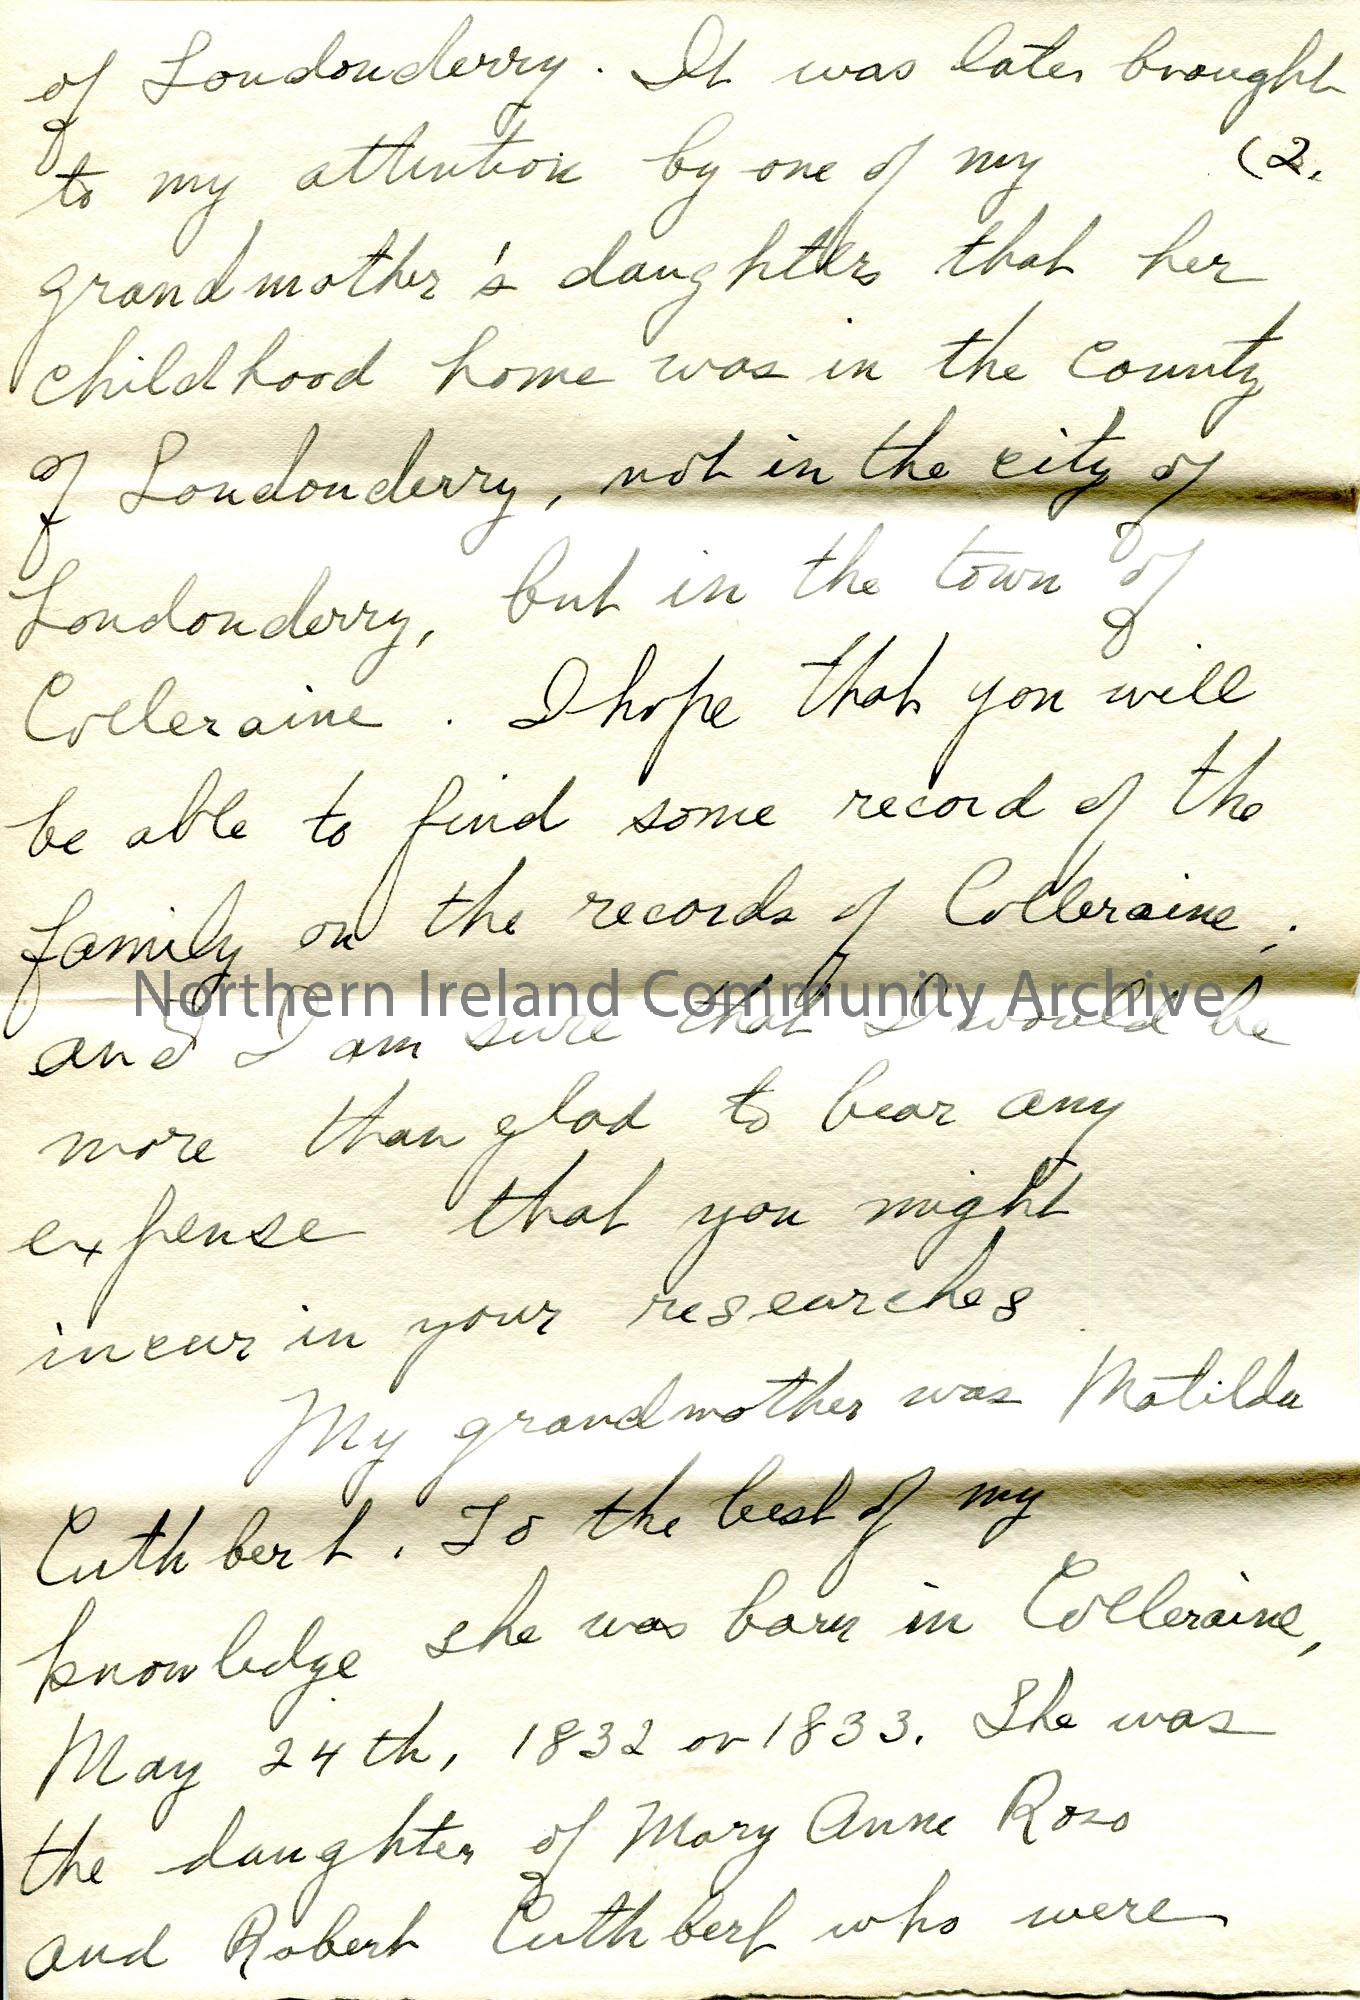 of Londonderry. It was later brought
to my attention by one of my (2.
grandmother's daughters that her
childhood home was in the county
of Londonderry, not in the city of
Londonderry, but in the town of
Colleraine. I hope that you will
be able to find some record of the
family on the records of Colleraine,
Northern Ireland Community Archive
and I am sure that I would be
more than glad to bear any
expense that you might
incur in your researches
My grandmother was Matilda
Cuthbert. To the best of my
knowledge she was born in Colleraine,
May 24th, 1832 or 1833. She was
the daughter of Mary Anne Ross
and Robert Cuthbert who were